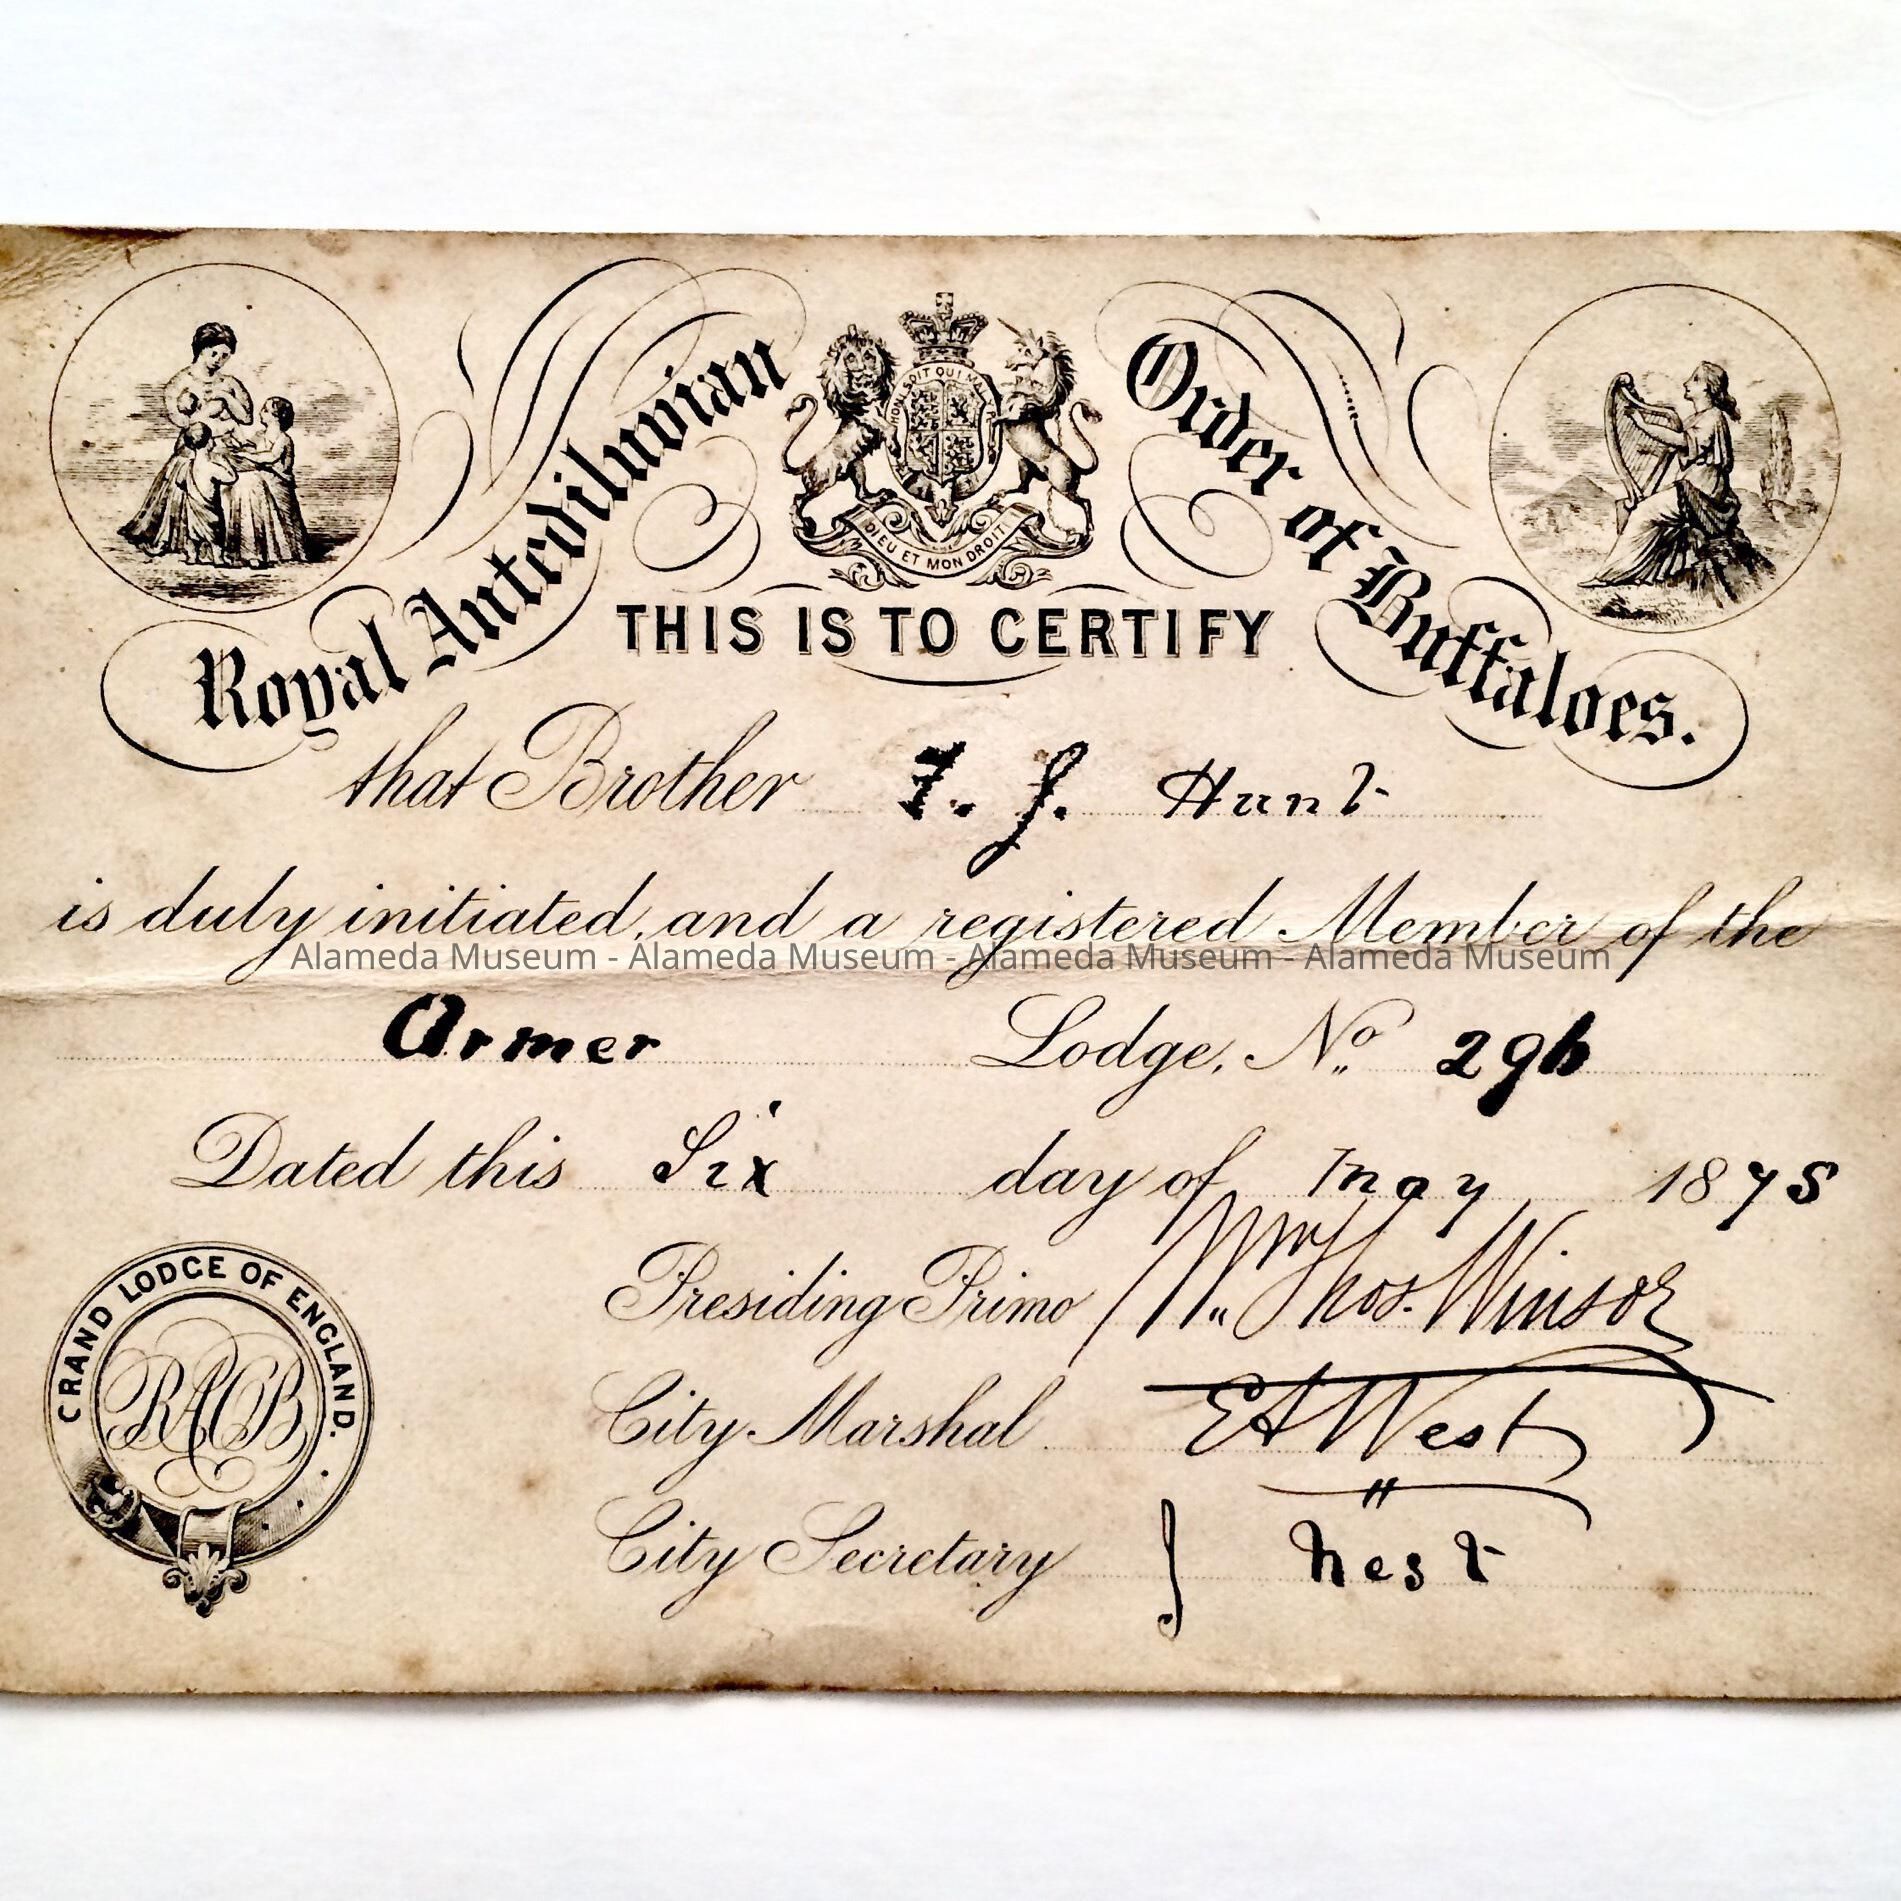 Royal Antediluvian Order of Buffaloes.
HONI SOIT QUI MAL Y PENSE
DIEU ET MON DROIT
THIS IS TO CERTIFY
that Brother J. Hunt
is duly initiated, and a registered Member of the
Alameda Museum - Alameda Museum - Alameda Museum - Alameda Museum
Armer Lodge, No. 296
Dated this Six day of May 1875
Presiding Primo Thos. Winsor
City Marshal E A West
City Secretary
GRAND LODGE OF ENGLAND.
RAOB